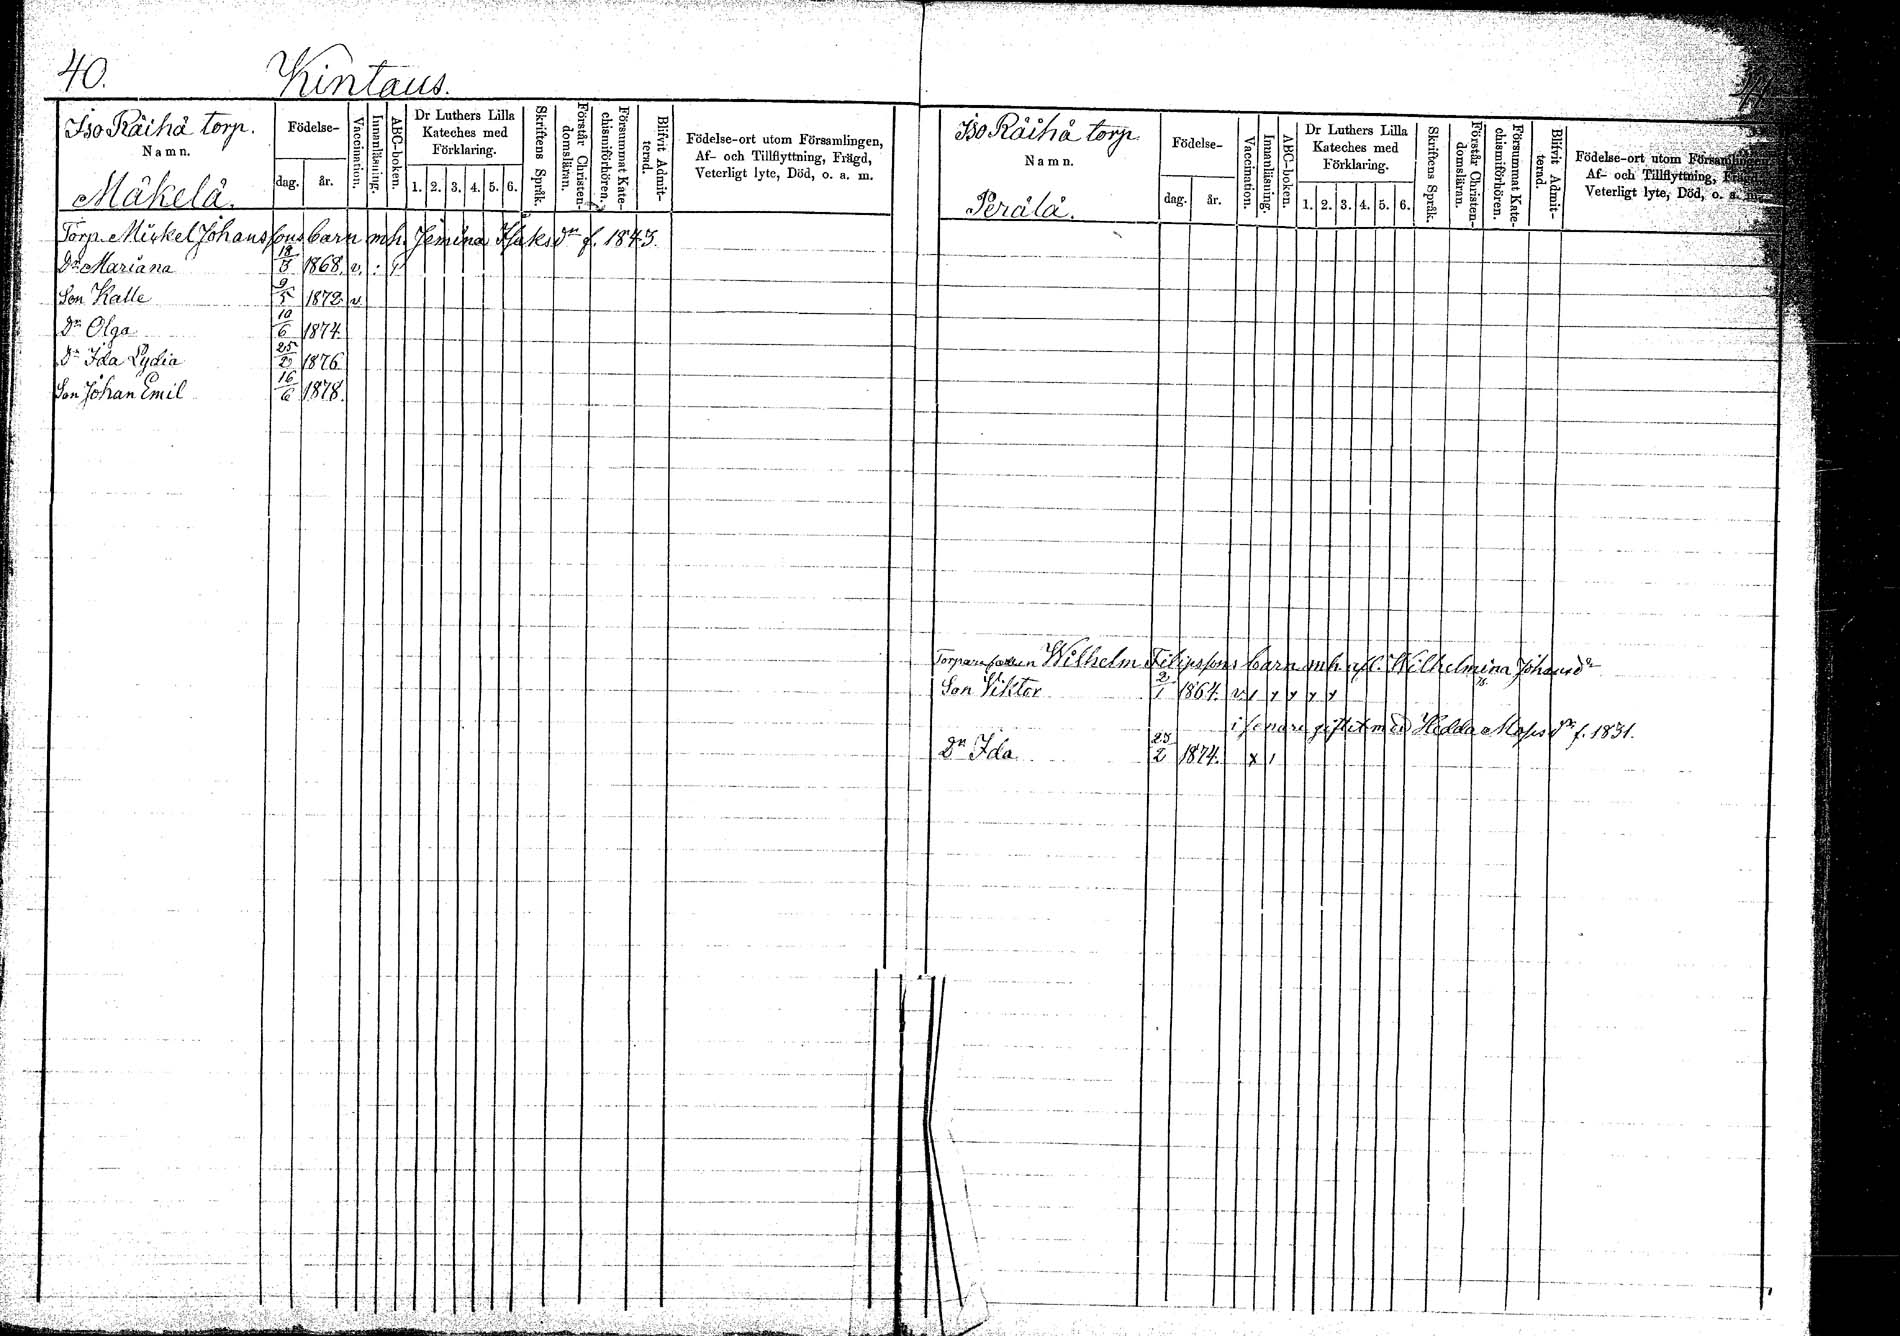 40.
Kintaus.
Iso Räihä torp.
Namn.
Mäkelä.
Födelse-
dag.
år.
Vaccination.
Innanläsning.
ABC-boken.
Dr Luthers Lilla
Kateches med
Förklaring.
1. 2. 3. 4. 5. 6.
Skriftens Språk.
Förstår Christen-
domsläran.
Försummat Kate-
chismiförhören.
Blifvit Admit-
terad.
Födelse-ort utom Församlingen,
Af- och Tillflyttning, Frägd,
Veterligt lyte, Död, o. a. m.
Torp. Mickel Johanssons barn mh. Jemina Isaksdr f. 1843.
Dr Mariana 18/3 1868. v.
Son Kalle 9/5 1872. v.
Dr Olga 10/6 1874.
Dr Ida Lydia 25/2 1876
Son Johan Emil 16/6 1878.
41
Iso Räihä torp
Namn.
Perälä.
Födelse-
dag.
år.
Vaccination.
Innanläsning.
ABC-boken.
Dr Luthers Lilla
Kateches med
Förklaring.
1. 2. 3. 4. 5. 6.
Skriftens Språk.
Förstår Christen-
domsläran.
Försummat Kate-
chismiförhören.
Blifvit Admit-
terad.
Födelse-ort utom Församlingen,
Af- och Tillflyttning, Frägd,
Veterligt lyte, Död, o. a. m.
Wilhelm Filipssons barn mh. afl. Wilhelmina Johansdr
Son Viktor 2/1 1864. v
i senare giftet med Hedda Mossdr f. 1831.
Dr Ida 23/2 1874. x